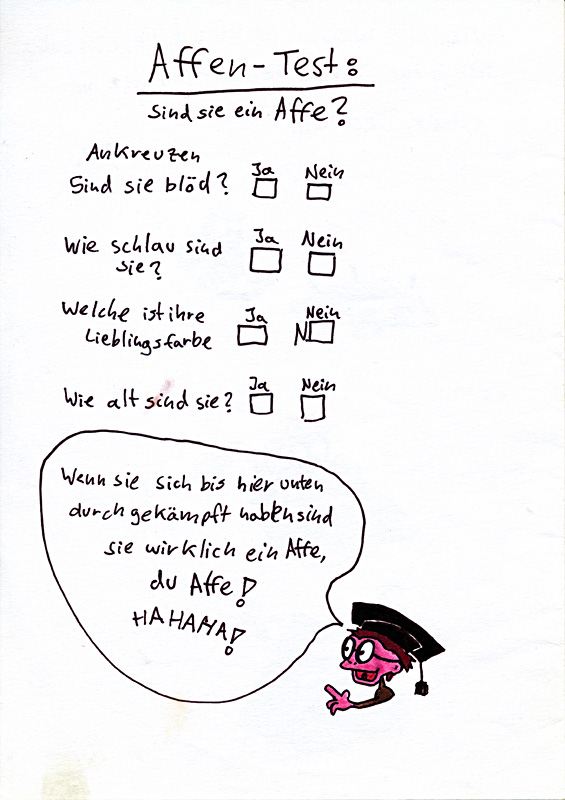 Affen-Test:
Sind sie ein Affe?
Ankreuzen
Ja Nein
Sind sie blöd?
Ja Nein
Wie schlau sind
sie?
Ja Nein
Welche ist ihre
Lieblingsfarbe N
Ja Nein
Wie alt sind sie?
Wenn sie sich bis hier unten
durch gekämpft haben sind
sie wirklich ein Affe,
du Affe!
HAHAHA!